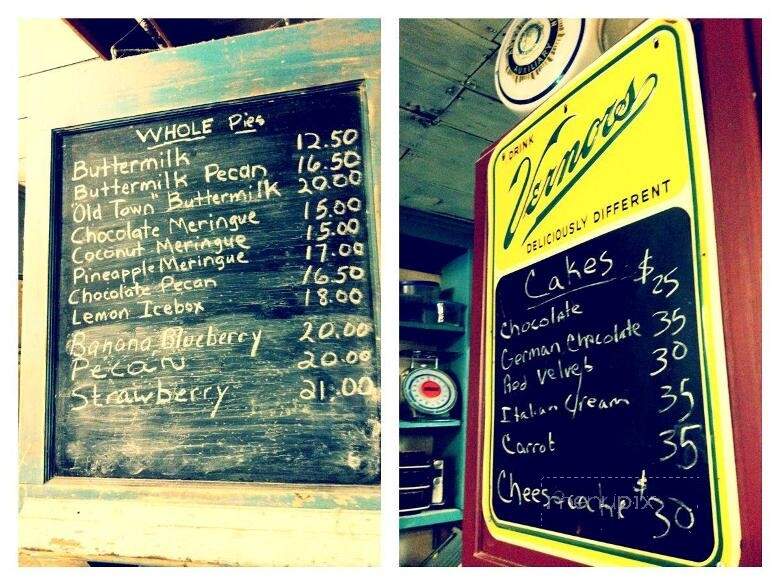 WHOLE Pies
Buttermilk 12.50
Buttermilk Pecan 16.50
"Old Town" Buttermilk 20.00
Chocolate Meringue 15.00
Coconut Meringue 15.00
Pineapple Meringue 17.00
Chocolate Pecan 16.50
Lemon Icebox 18.00
Banana Blueberry 20.00
Pecan 20.00
Strawberry 21.00
AUXILIARY
DRINK
Vernors
DELICIOUSLY DIFFERENT
Cakes
Chocolate $25
German Chocolate 35
Red Velvet 30
Italian Cream 35
Carrot 35
Cheesecake $30
menupix